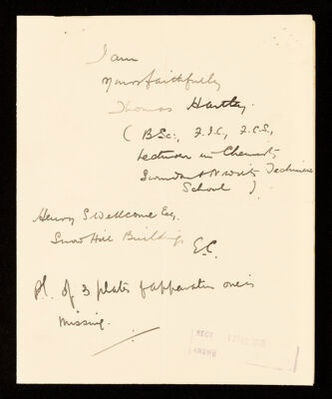 I am
Yours faithfully
Thomas Hartley.
( B.Sc., F.I.C., F.C.S.,
Lecturer in Chemistry,
Swindon & N. Wilts Technical
School )
Henry S Wellcome Esq.
Snow Hill Buildings
E.C.
Pl. of 3 plates of apparatus one is
missing.
RECD
ANSWD